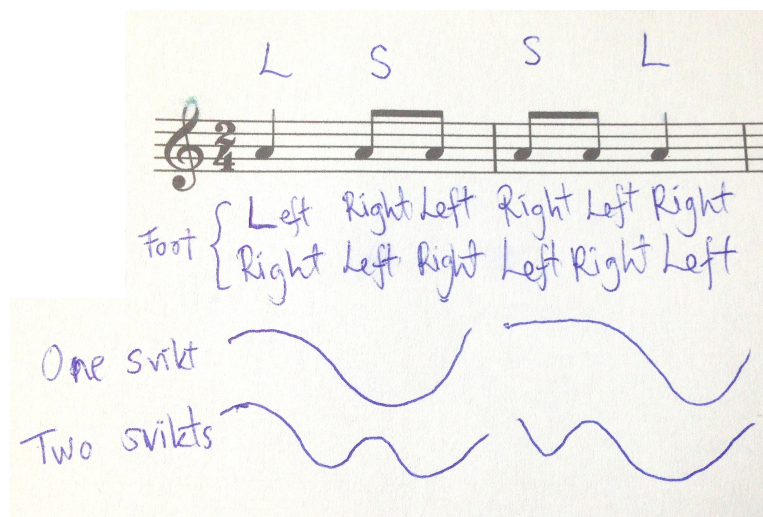 L S S L
2
4
Left Right Left Right Left Right
Foot
Right Left Right Left Right Left
One svikt
Two svikts